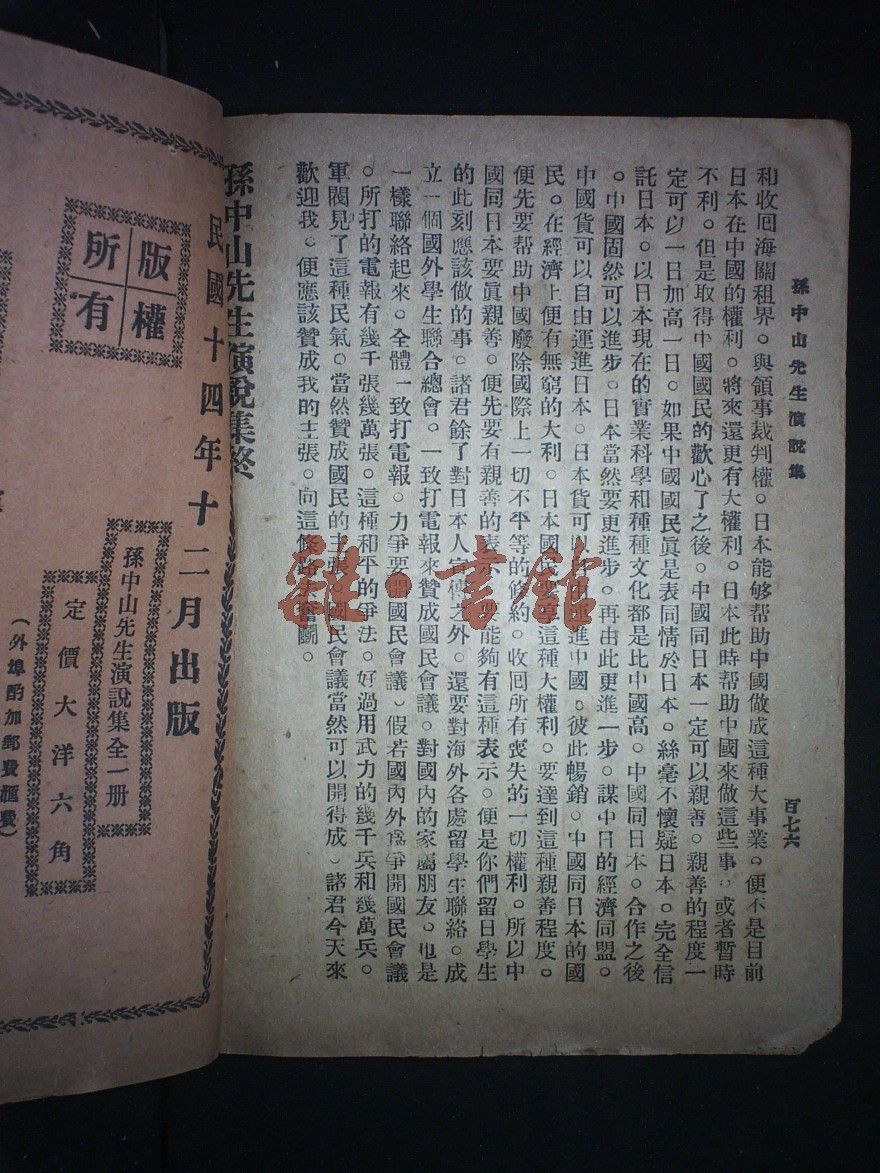 孫中山先生演說集
百七六
和收囘海關租界。與領事裁判權。日本能够帮助中國做成這種大事業。便不是目前
日本在中國的權利。將來還更有大權利。日本此時帮助中國來做這些事。或者暫時
不利。但是取得中國國民的歡心了之後。中國同日本一定可以親善。親善的程度一
定可以一日加高一日。如果中國國民眞是表同情於日本。絲毫不懷疑日本。完全信
託日本。以日本現在的實業科學和種種文化都是比中國高。中國同日本。合作之後
。中國固然可以進步。日本當然要更進步。再由此更進一步。謀中日的經濟同盟。
中國貨可以自由運進日本。日本貨可以自由運進中國。彼此暢銷。中國同日本的國
民。在經濟上便有無窮的大利。日本國民要享這種大權利。要達到這種親善程度。
便先要帮助中國廢除國際上一切不平等的條約。收囘所有喪失的一切權利。所以中
國同日本要眞親善。便先要有親善的表示。要能夠有這種表示。便是你們留日學生
的此刻應該做的事。諸君餘了對日本人宣傳之外。還要對海外各處留學生聯絡。成
立一個國外學生聯合總會。一致打電報來贊成國民會議。對國內的家屬朋友。也是
一樣聯絡起來。全體一致打電報。力爭要開國民會議。假若國內外爲爭開國民會議
。所打的電報有幾千張幾萬張。這種和平的爭法。好過用武力的幾千兵和幾萬兵。
軍閥見了這種民氣。當然贊成國民的主張。國民會議當然可以開得成。諸君今天來
歡迎我。便應該贊成我的主張。向這條路去奮鬭。
孫中山先生演說集終
版權
所有
民國十四年十二月出版
孫中山先生演說集全一册
定價大洋六角
（外埠酌加郵費匯費）
雜·書館